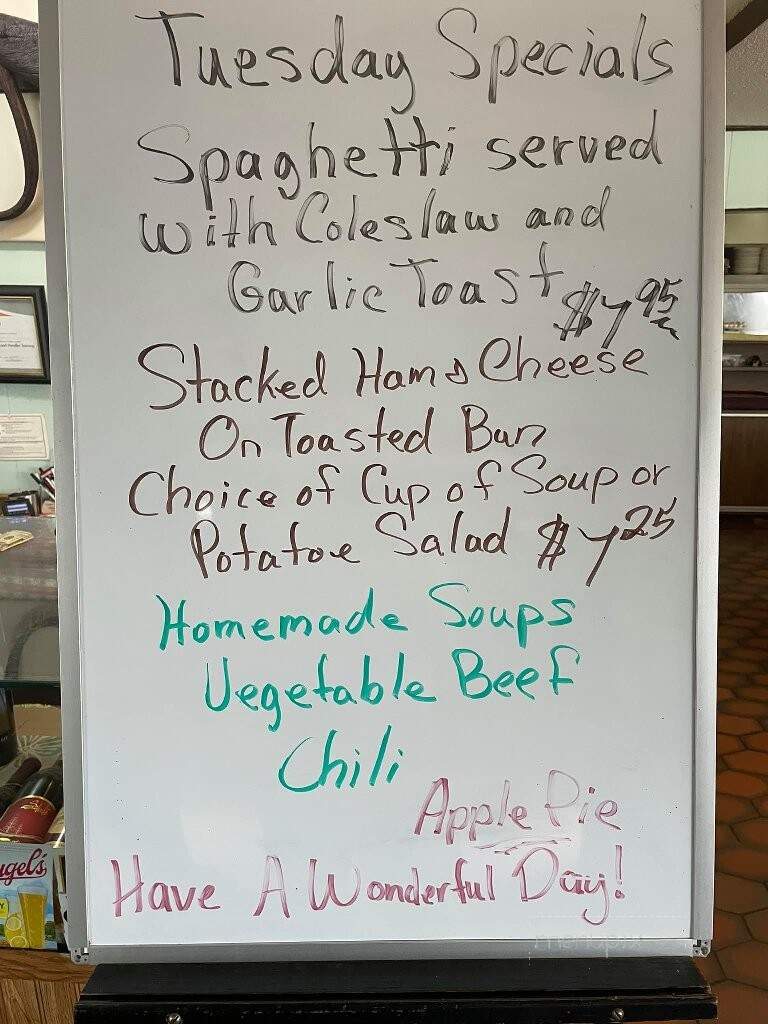 Tuesday Specials
Spaghetti served
with Coleslaw and
Garlic Toast $7.95
Stacked Ham & Cheese
On Toasted Bun
Choice of Cup of Soup or
Potatoe Salad $7.25
Homemade Soups
Vegetable Beef
Chili
Apple Pie
Have A Wonderful Day!
ugel's